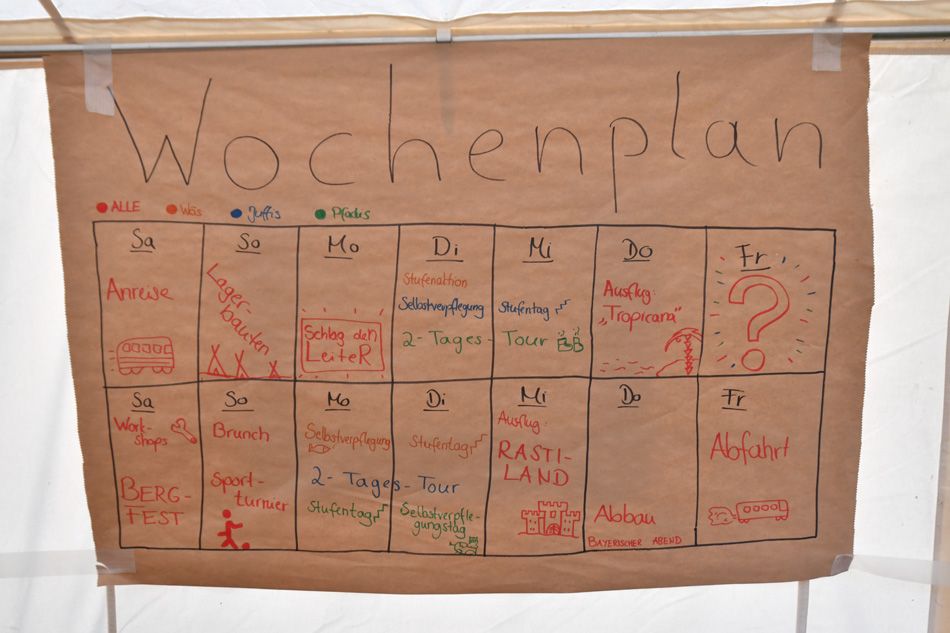 Wochenplan
ALLE Wös Juffis Pfadis
Sa
Anreise
So
Lager-
bauten
Mo
Schlag den
LeiteR
Di
Stufenaktion
Selbstverpflegung
2-Tages-
Mi
Stufentag
Tour
Do
Ausflug:
„Tropicana"
Fr
?
Sa
Work-
shops
BERG-
FEST
So
Brunch
Sport-
turnier
Mo
Selbstverpflegung
2-Tages-Tour
Stufentag
Di
Stufentag
Selbstverpfle-
gungstag
Mi
Ausflug:
RASTI-
LAND
Do
Abbau
BAYERISCHER ABEND
Fr
Abfahrt